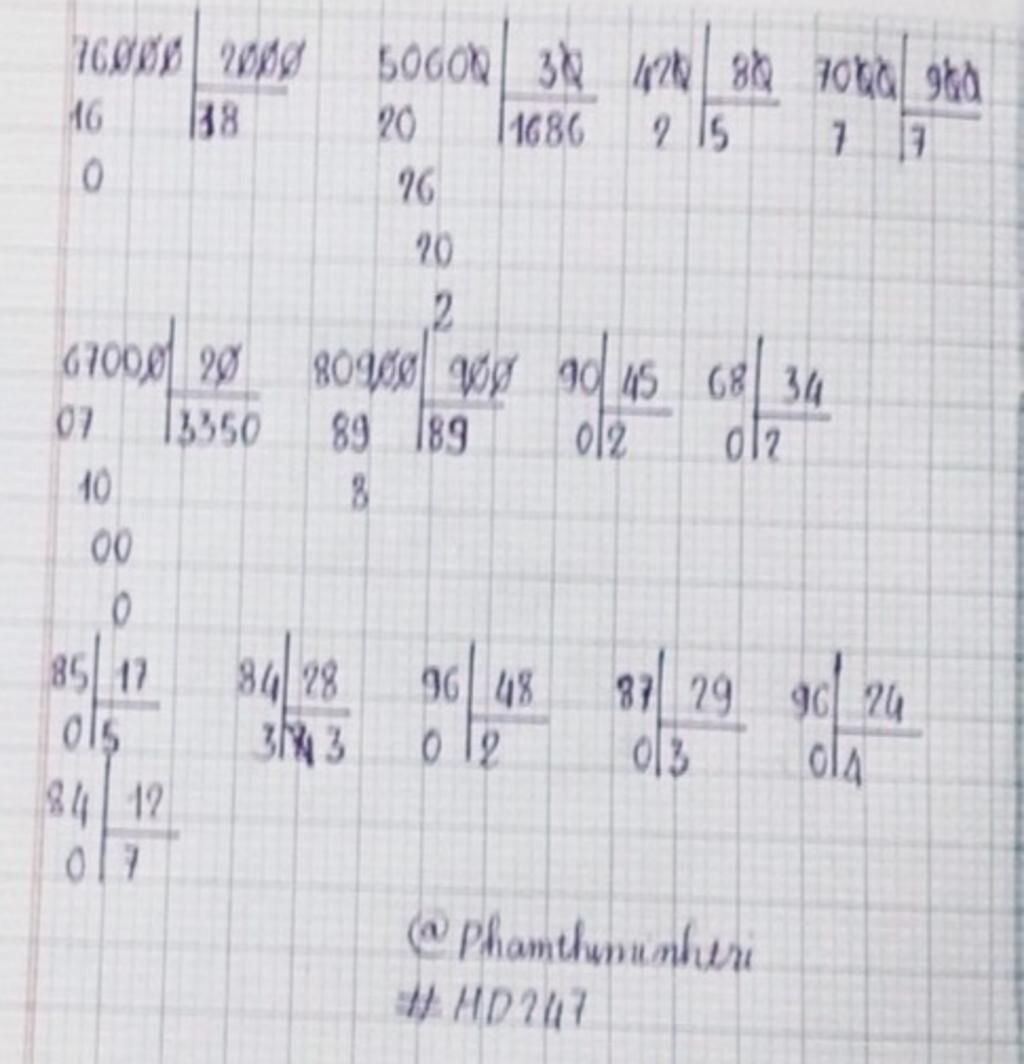 76000 2000 50600 30 420 80 7000 900
16 38 20 1686 2 5 7 7
0 26
20
2
67000 20 80900 900 90 45 68 34
07 3350 89 89 0 2 0 2
10 8
00
0
85 17 84 28 96 48 87 29 96 24
0 5 3 3 0 2 0 3 0 4
84 12
0 7
# HD247